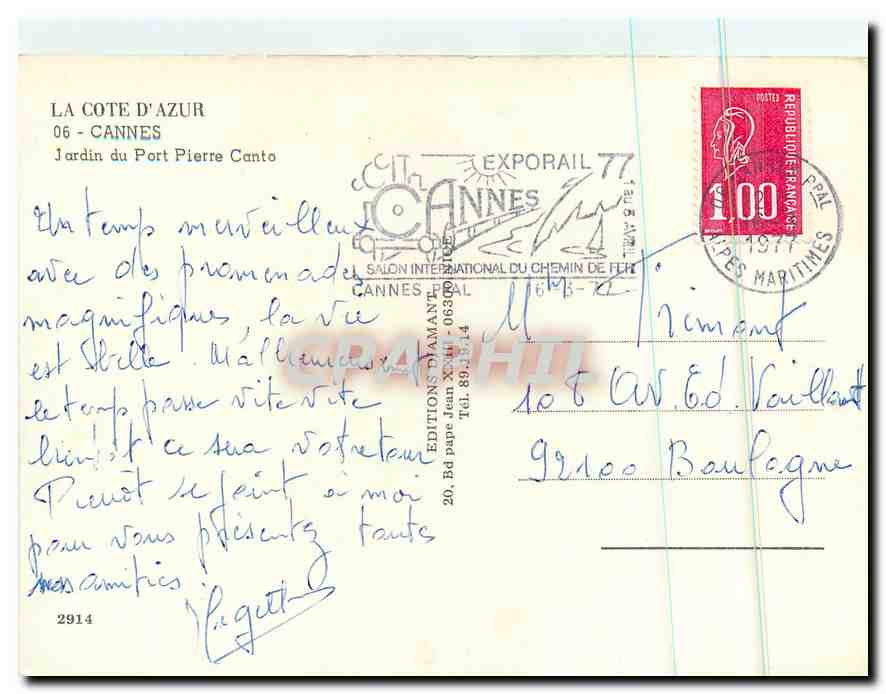 LA COTE D'AZUR
06 - CANNES
Jardin du Port Pierre Canto
Un temps merveilleux
avec des promenades
magnifiques, la vie
est belle. Malheureusement
le temps passe vite vite
bientôt ce sera votre tour
se joint à moi
pour vous présenter toutes
nos amitiés.
2914
EDITIONS DIAMANT
20, Bd pape Jean XXIII - 06300 NICE
Tél. 89.19.14
EXPORAIL 77
CANNES
1 au 8 AVRIL
SALON INTERNATIONAL DU CHEMIN DE FER
CANNES PPAL
POSTES
REPUBLIQUE-FRANÇAISE
1,00
CANNES PPAL
1977
ALPES MARITIMES
Trimont
108 AV. Ed. Vaillant
92100 Boulogne
CPAPHIL